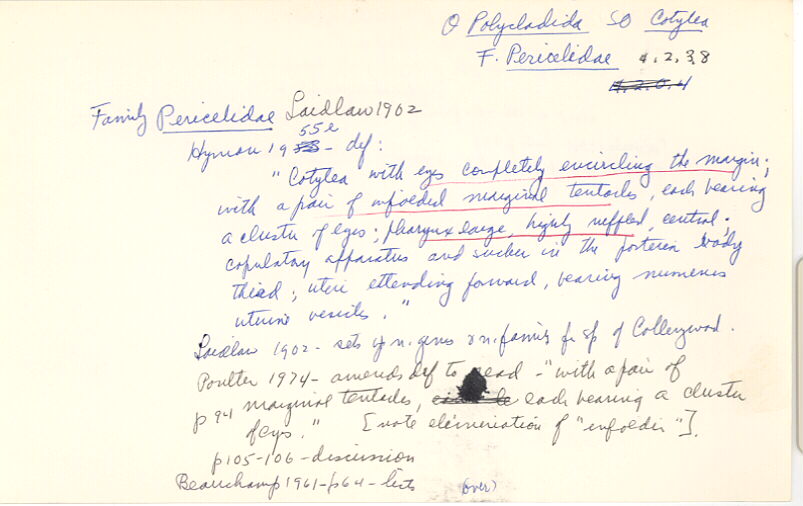 O Polycladida SO Cotylea
F. Pericelidae 4.2.3.8
4.2.0.4
Family Pericelidae Laidlaw 1902
Hyman 1955e - def:
"Cotylea with eyes completely encircling the margin;
with a pair of infolded marginal tentacles, each bearing
a cluster of eyes; pharynx large, highly ruffled, central;
copulatory apparatus and sucker in the posterior body
third; uteri extending forward, bearing numerous
uterine vesicles."
Laidlaw 1902 - sets up n. genus & n. family for sp of Collingwood.
Poulter 1974 - amends def to read - "with a pair of
p 94 marginal tentacles, each bearing a cluster
of eyes." [note elimination of "infolded"].
p105-106 - discussion
Beauchamp 1961 - p64 - lists
(over)